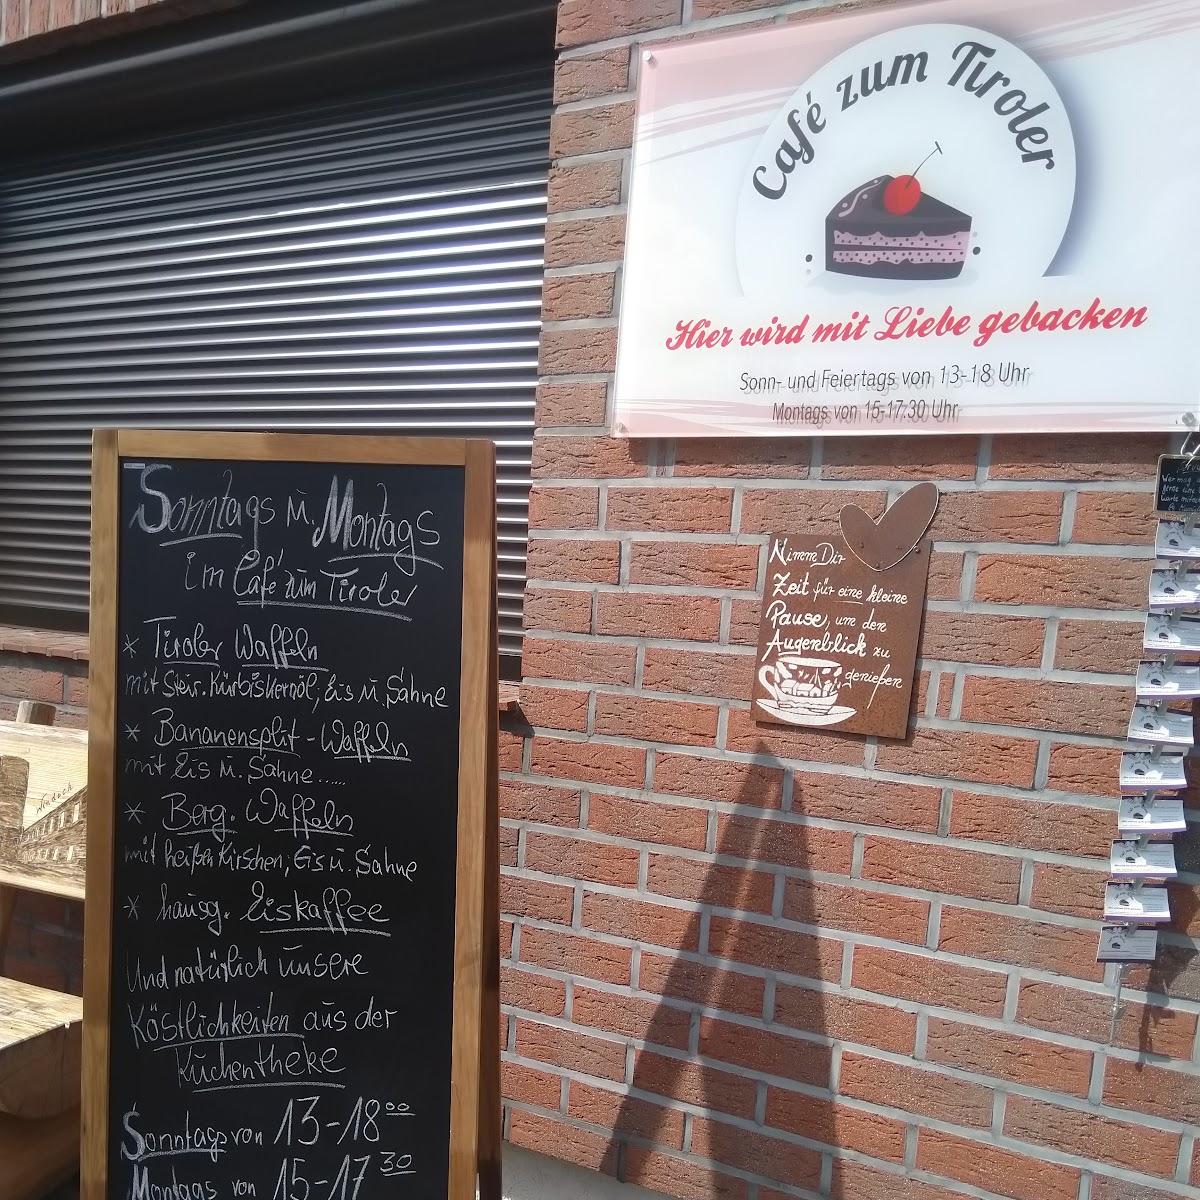 Café zum Tiroler
Hier wird mit Liebe gebacken
Sonn- und Feiertags von 13-18 Uhr
Montags von 15-17.30 Uhr
Nimm Dir
Zeit für eine kleine
Pause, um den
Augenblick zu
genießen
Sonntags u. Montags
im Café zum Tiroler
* Tiroler Waffeln
mit Steir. Kürbiskernöl, Eis u. Sahne
* Bananensplit-Waffeln
mit Eis u. Sahne......
* Berg. Waffeln
mit heißen Kirschen, Eis u. Sahne
* hausg. Eiskaffee
Und natürlich unsere
Köstlichkeiten aus der
Kuchentheke
Sonntags von 13-18⁰⁰
Montags von 15-17³⁰